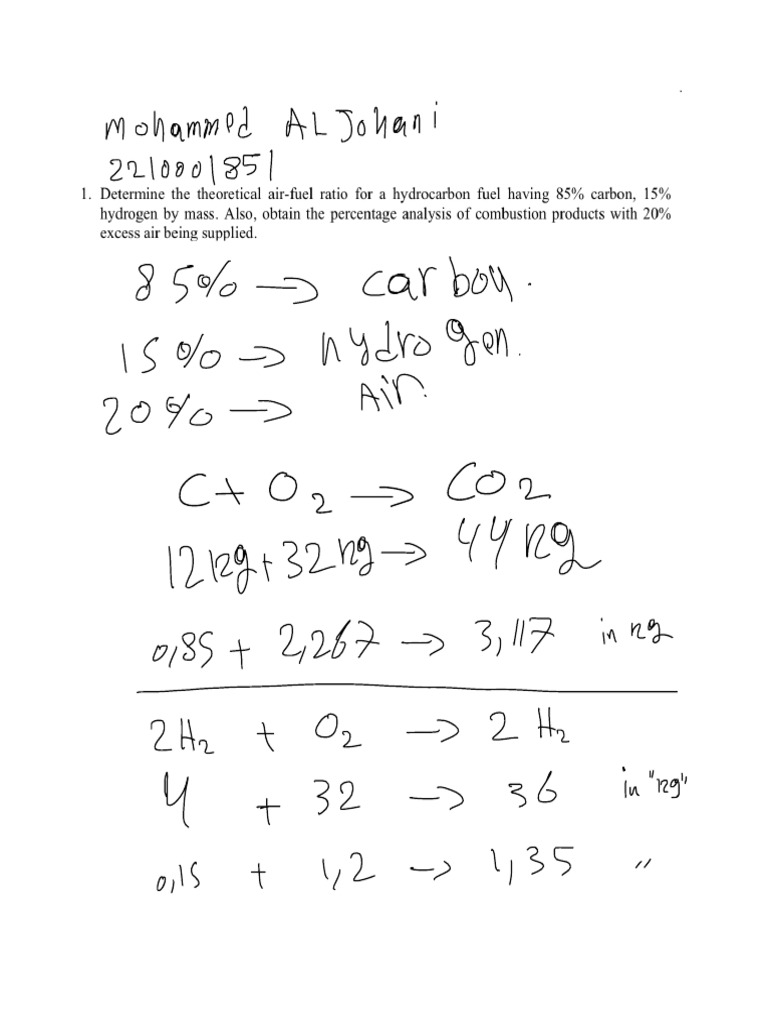 Mohammed ALJohani
2210001851
1. Determine the theoretical air-fuel ratio for a hydrocarbon fuel having 85% carbon, 15%
hydrogen by mass. Also, obtain the percentage analysis of combustion products with 20%
excess air being supplied.
85% → carbon.
15% → hydrogen.
20% → Air.
C + O2 → CO2
12 kg + 32 kg → 44 kg
0,85 + 2,267 → 3,117 in kg
2H2 + O2 → 2 H2
4 + 32 → 36 in "kg"
0,15 + 1,2 → 1,35 "